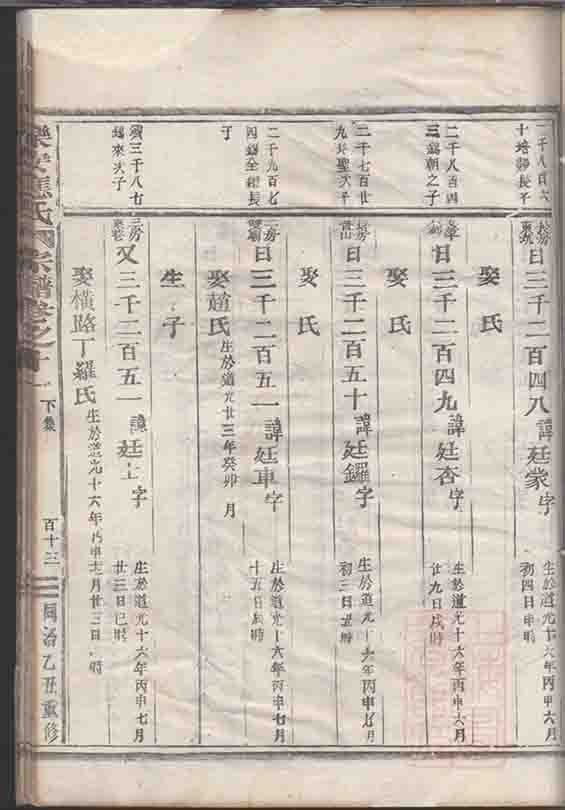 十培錦長子
日三千二百四八諱廷蒙字
生於道光十六年丙申六月
初四日申時
娶氏
二千八百四
三錫朝之子
日三千二百四九諱廷杏字
生於道光十六年丙申六月
廿九日戌時
娶氏
二千七百廿
日三千二百五十諱廷鑼字
生於道光十六年丙申七月
初三日丑時
娶氏
二千九百七
四錫全繼長
子
日三千二百五一諱廷車字
生於道光十六年丙申七月
十五日辰時
娶趙氏生於道光廿三年癸卯 月
生子
三千八七
錫來次子
又三千二百五一諱廷上字
生於道光十六年丙申七月
廿三日巳時
娶橫路丁羅氏生於道光十六年丙申十月廿三日 時
樂安應氏宗譜卷之十一
下集
百十三
同治乙丑重修